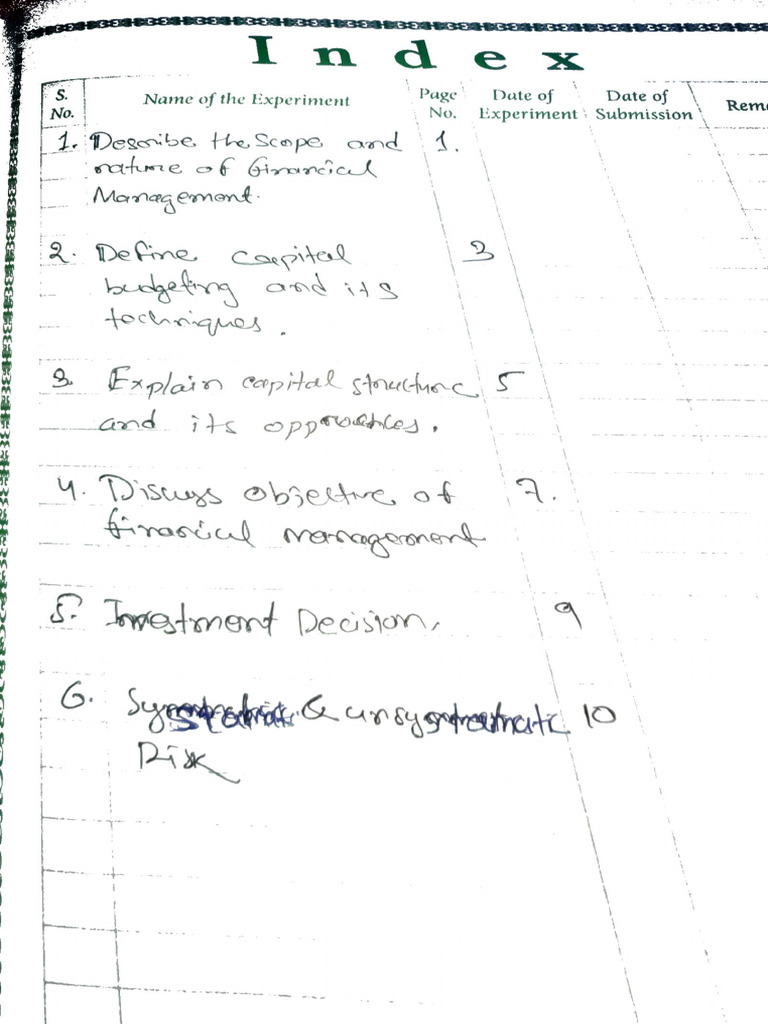 Index
S. No. Name of the Experiment Page No. Date of Experiment Date of Submission Rem
1. Describe the Scope and 1.
nature of financial
Management.
2. Define capital 3
budgeting and its
techniques.
3. Explain capital structure 5
and its approaches.
4. Discuss objective of 7.
financial management
5. Investment Decision, 9
6. Systematic & unsystematic 10
Risk